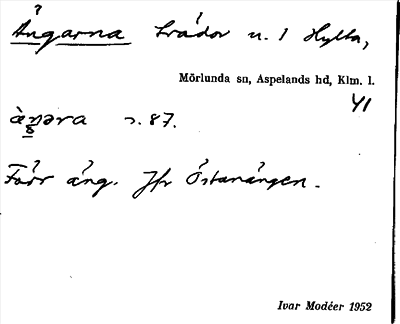 Ängarna trädor u. 1 Hylta,
Mörlunda sn, Aspelands hd, Klm. l.
41
s. 87.
Förr äng. Jfr Östanängen.
Ivar Modéer 1952